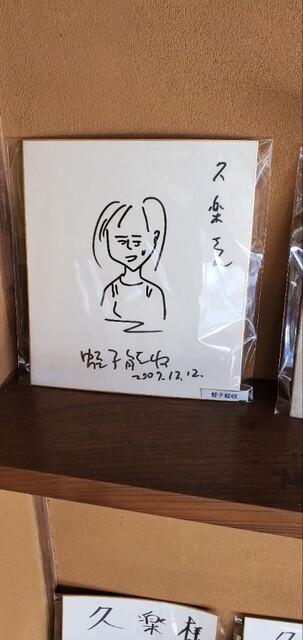 久楽さん
蛭子能収
2007.12.12.
蛭子能収
久楽様
久